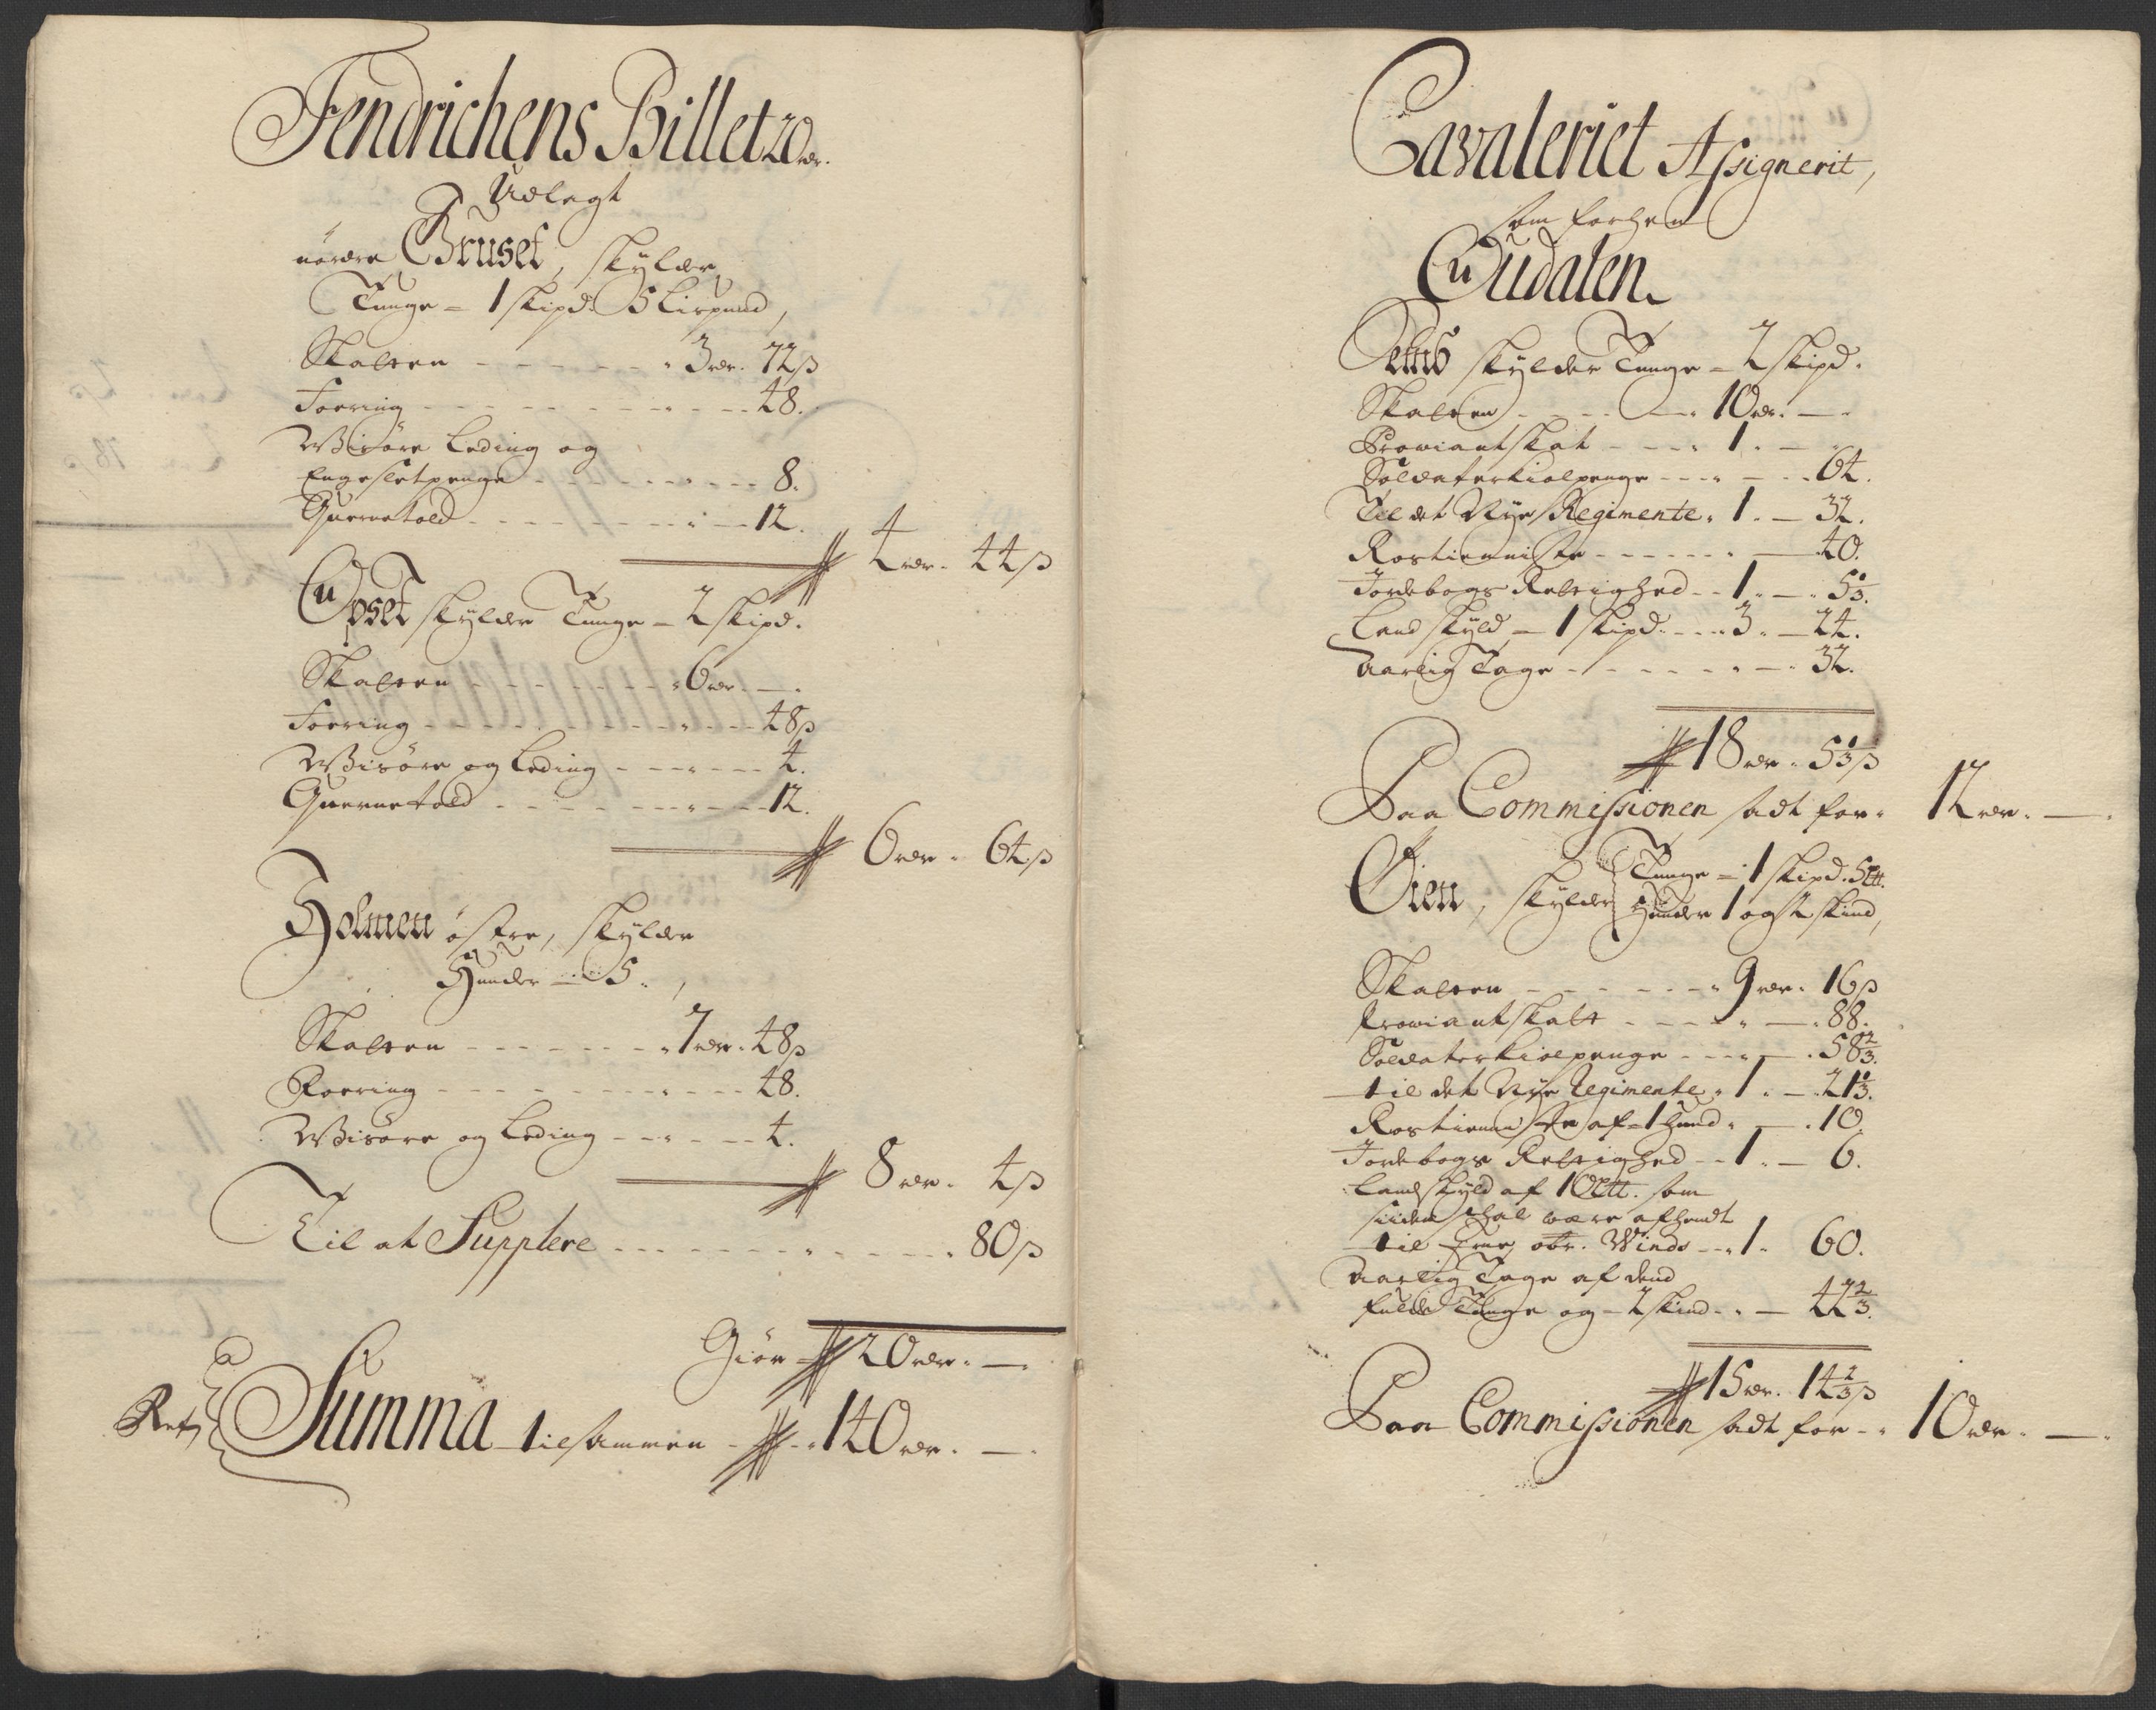 Fendrichens Billet 20 rdr.
Udlagt
nordre Gruset, skylder
Tunge - 1 skipd. 5 Lispund,
Skatten - - - 3 rdr. 72 ß
Foering - - - 48.
Wisøre Leding og
Engesletpenge - - - 8.
Quernetold - - - 12.
4 rdr. 44 ß
Opset skylder Tunge - 2 skipd.
Skatten - - - 6 rdr. —
Foering - - - 48 ß
Wisøre og Leding - - - 4.
Quernetold - - - 12.
6 rdr. 64 ß
Holmen østre, skylder
Hunder - 5.,
Skatten - - - 7 rdr. 48 ß
Foering - - - 48.
Wisøre og Leding - - - 4.
8 rdr. 4 ß
Til at Supplere - - - 80 ß
Giør 20 rdr. —
Summa tilsammen - 140 rdr. —
Cavaleriet Assignerit,
som forhen
Oudalen.
skylder Tunge - 2 skipd.
Skatten - - - 10 rdr. —
Proviantskat - - - 1. —
Soldaterkiolpenge - - - 64.
Til det Nye Regimente. 1. — 32.
Rostienniste - - - 40.
Jordebogs Rettighed - - 1. — 5 1/3.
Landskyld - 1 skipd. - - 3. — 24.
Aarlig Tage - - - 32.
18 rdr. 5 1/3 ß
Paa Commissionen sadt for. 12 rdr. —
Øien, skylder Tunge - 1 skipd. 5 ltt.
Hunder 1 og 2 skind,
Skatten - - - 9 rdr. 16 ß
Proviantskatt - - - 88.
Soldaterkiolpenge - - - 58 2/3.
til det Nye Regimente. 1. — 21 1/3.
Rostienniste af - 1 Hund. — 10.
Jordebogs Rettighed - - 1. — 6.
Landskyld af 10 ltt. som
siiden skal være afhendt
til Sr. Winds - - 1. 60.
Aarlig Tage af dend
fulde Tunge og - 2 skind - — 42 2/3.
15 rdr. 14 2/3 ß
Paa Commissionen sadt for - 10 rdr. —